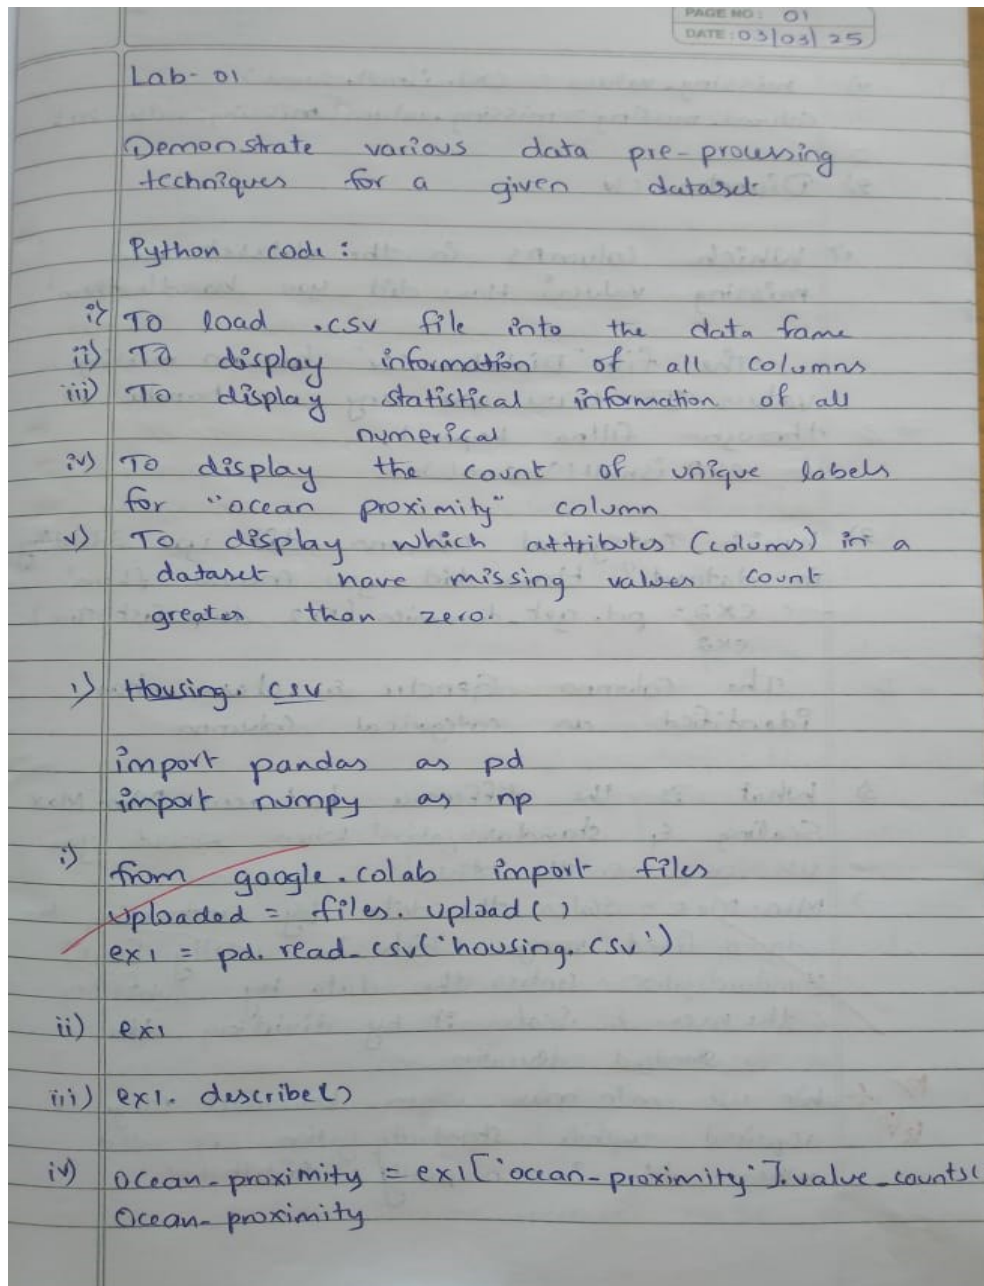 PAGE NO: 01
DATE: 03/03/25
Lab-01
Demonstrate various data pre-processing
techniques for a given dataset
Python code:
i) To load .csv file into the data fame
ii) To display information of all columns
iii) To display statistical information of all
numerical
iv) To display the count of unique labels
for "ocean proximity" column
v) To display which attributes (colums) in a
dataset have missing values count
greater than zero.
1) Housing.csv
import pandas as pd
import numpy as np
i) from google.colab import files
uploaded = files.upload()
ex1 = pd.read_csv('housing.csv')
ii) ex1
iii) ex1.describe()
iv) Ocean_proximity = ex1['ocean_proximity'].value_counts(
Ocean_proximity